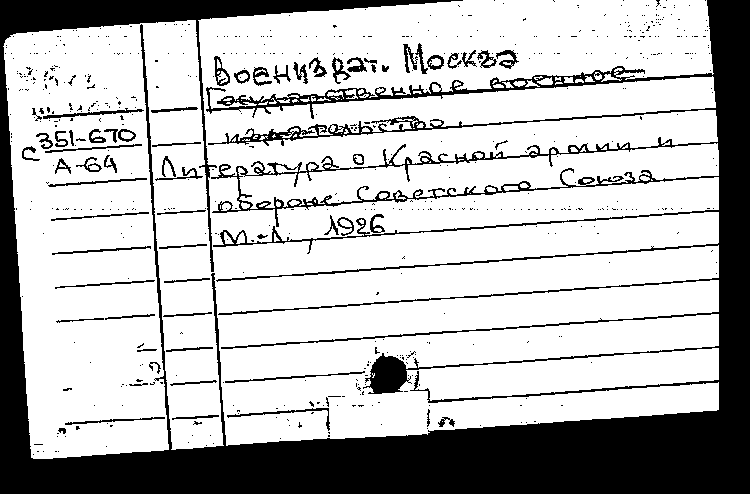 Воениздат. Москва
Государственное военное
издательство.
351-670
с А-64
Литература о Красной армии и
обороне Советского Союза
М.-Л., 1926.